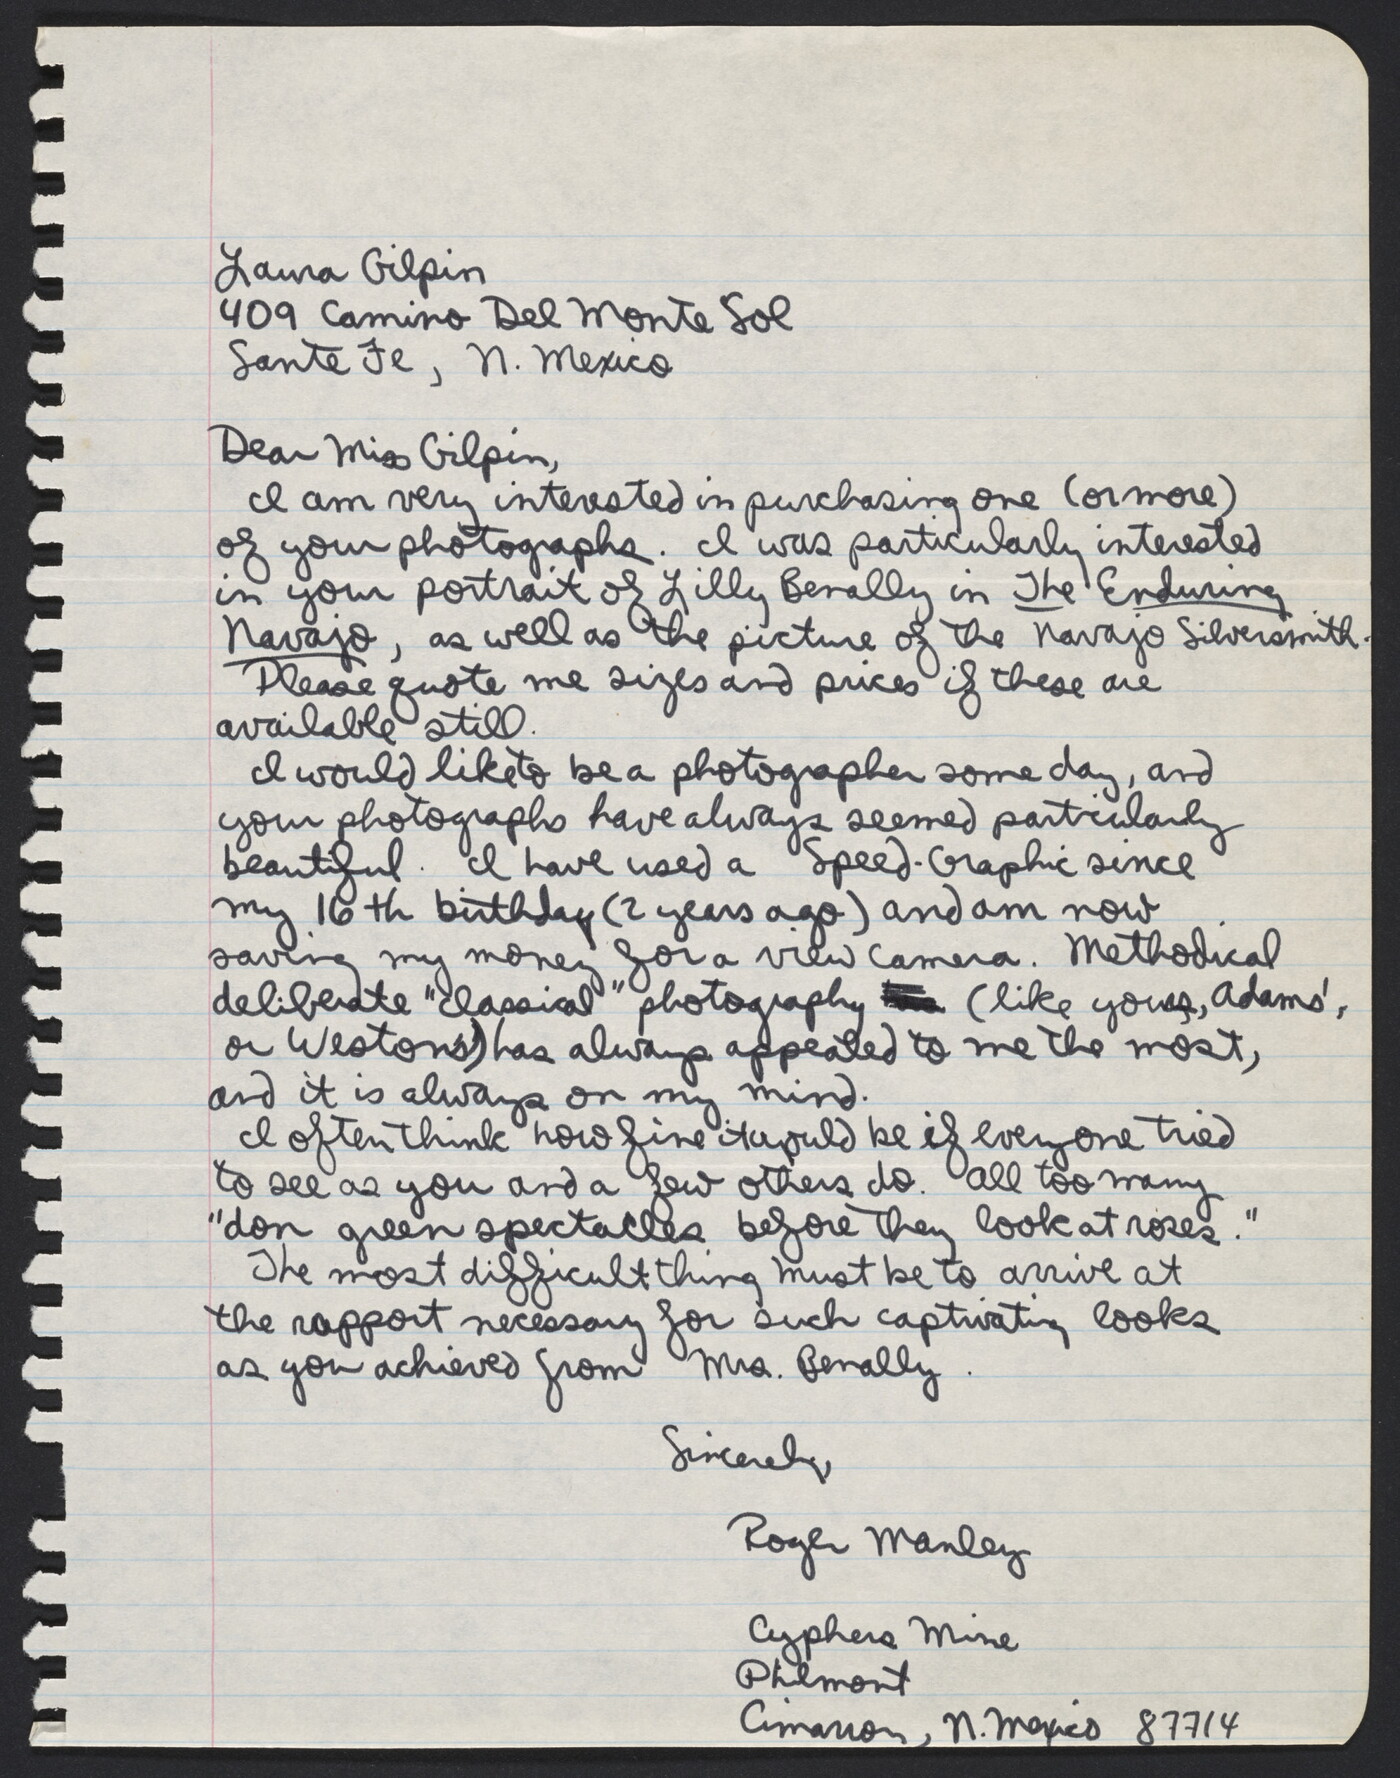 Laura Gilpin
409 Camino Del Monte Sol
Sante Fe, N. Mexico
Dear Miss Gilpin,
I am very interested in purchasing one (or more)
of your photographs. I was particularly interested
in your portrait of Lilly Benally in The Enduring
Navajo, as well as the picture of the Navajo Silversmith.
Please quote me sizes and prices if these are
available still.
I would like to be a photographer some day, and
your photographs have always seemed particularly
beautiful. I have used a Speed-Graphic since
my 16th birthday (2 years ago) and am now
saving my money for a view camera. Methodical
deliberate "classical" photography (like yours, Adams',
or Weston's) has always appealed to me the most,
and it is always on my mind.
I often think how fine it would be if everyone tried
to see as you and a few others do. All too many
"don green spectacles before they look at roses."
The most difficult thing must be to arrive at
the rapport necessary for such captivating looks
as you achieved from Mrs. Benally.
Sincerely,
Roger Manley
Cyphers Mine
Philmont
Cimarron, N. Mexico 87714